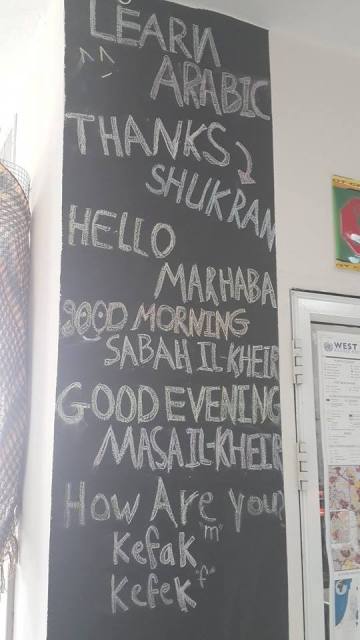 LEARN
ARABIC
THANKS
SHUKRAN
HELLO
MARHABA
GOOD MORNING
SABAH IL-KHEIR
GOOD EVENING
MASA IL-KHEIR
How Are you?
Kefak "m"
Kefek "f"
WEST